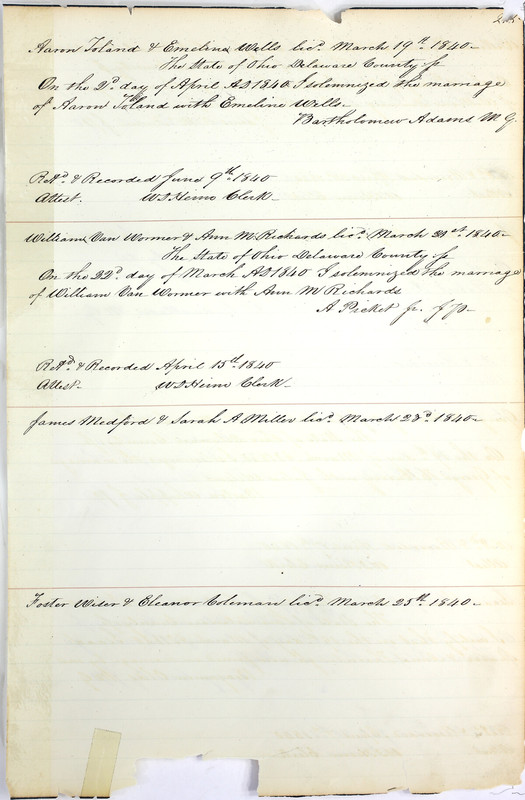 Aaron Toland & Emeline Wells licd. March 19th. 1840-
The State of Ohio Delaware County ss
On the 2d. day of April AD 1840. I solemnized the marriage
of Aaron Toland with Emeline Wells-
Bartholomew Adams M.G.
Retd. & Recorded June 9th. 1840
Attest. W D Heim Clerk-
William Van Wormer & Ann M. Richards licd. March 21st. 1840-
The State of Ohio Delaware County ss
On the 22d. day of March AD 1840 I solemnized the marriage
of William Van Wormer with Ann M Richards
A Picket Jr. J.P.-
Retd. & Recorded April 15th. 1840
Attest- W D Heim Clerk-
James Medford & Sarah A Miller licd. March 23d. 1840-
Foster Wiser & Eleanor Coleman licd. March 25th. 1840-